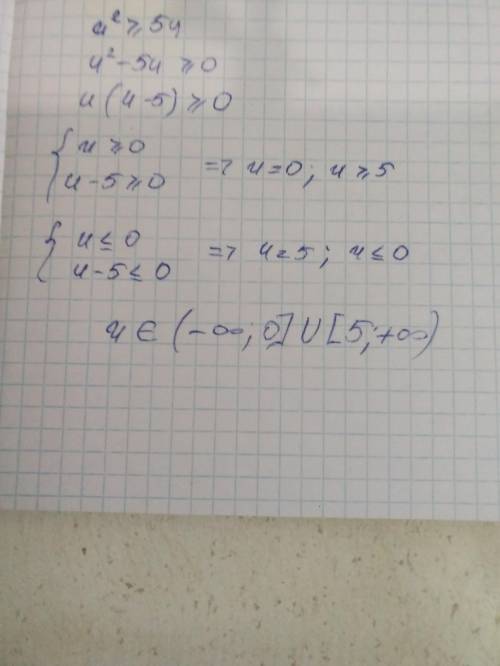 u² ≥ 5u
u² - 5u ≥ 0
u(u-5) ≥ 0
{ u ≥ 0
u - 5 ≥ 0 => u = 0; u ≥ 5
{ u ≤ 0
u - 5 ≤ 0 => u = 5; u ≤ 0
u ∈ (-∞; 0] U [5; +∞)